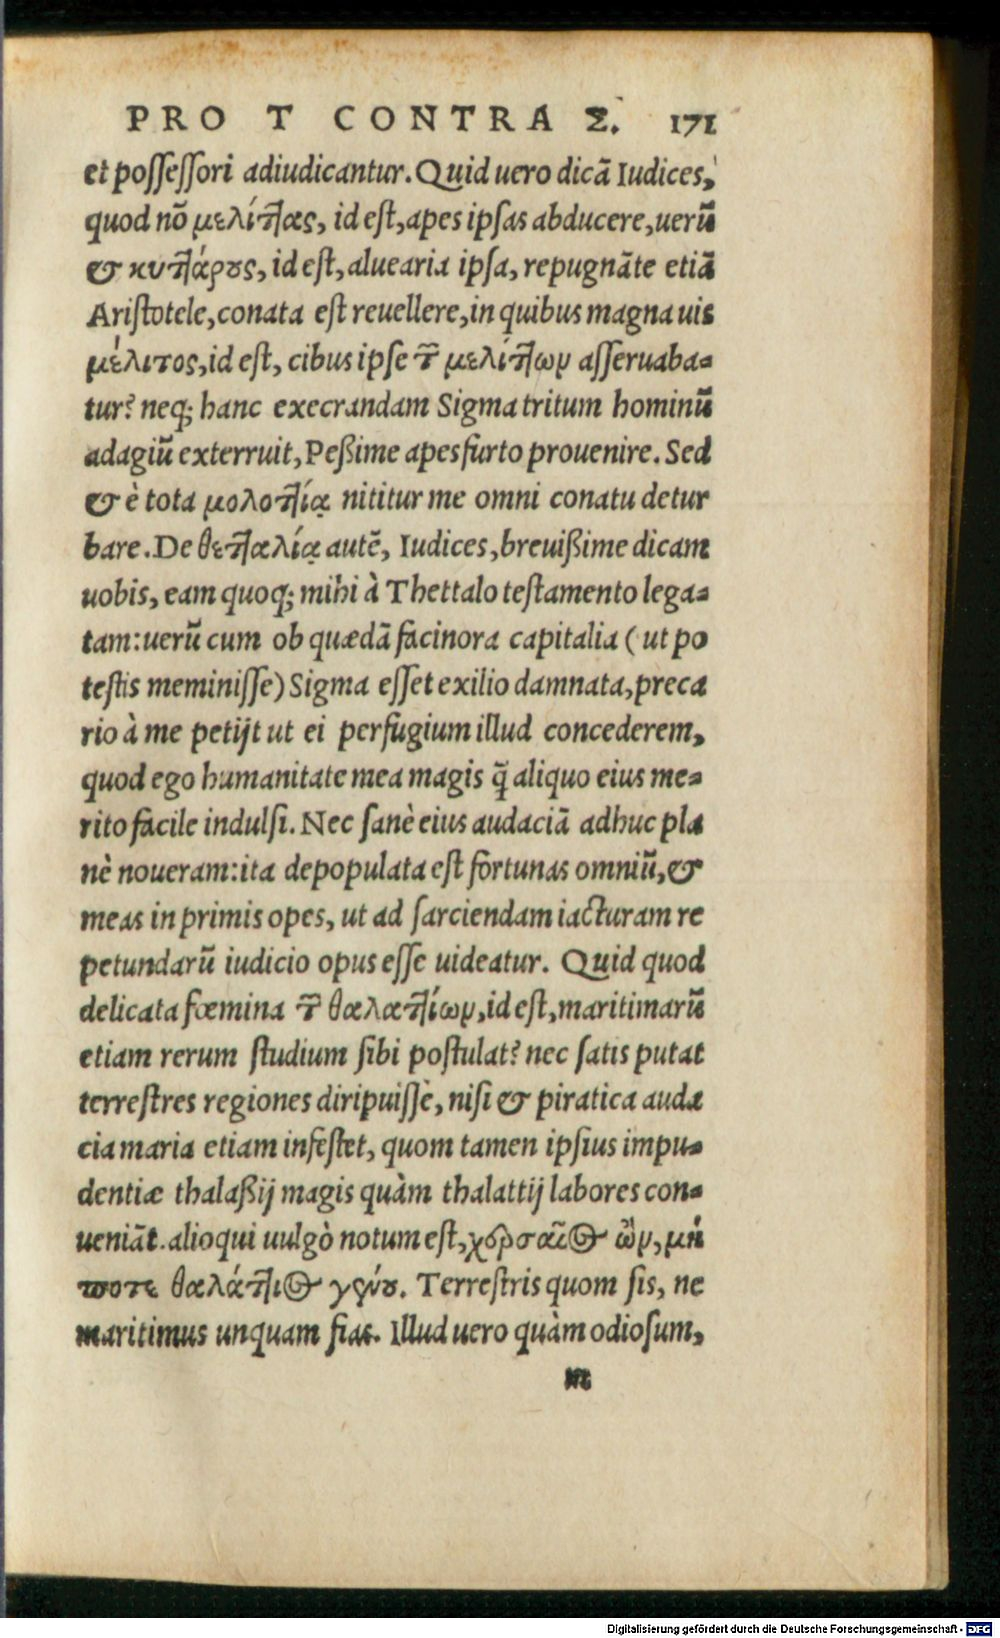 PRO T CONTRA Σ. 171
et possessori adiudicantur. Quid uero dicã Iudices,
quod nõ μελίτ͞τας, id est, apes ipsas abducere, uerũ
& κυτ͞τάρους, id est, aluearia ipsa, repugnãte etiã
Aristotele, conata est reuellere, in quibus magna uis
μέλιτος, id est, cibus ipse τ͂ μελίττων asseruaba-
tur? neq; hanc execrandam Sigma tritum hominũ
adagiũ exterruit, Peßime apes furto prouenire. Sed
& è tota μολοττίᾳ nititur me omni conatu detur
bare. De θετταλίᾳ autẽ, Iudices, breuißime dicam
uobis, eam quoq; mihi à Thettalo testamento lega-
tam: uerũ cum ob quædã facinora capitalia (ut po
testis meminisse) Sigma esset exilio damnata, preca
rio à me petijt ut ei perfugium illud concederem,
quod ego humanitate mea magis q̃ aliquo eius me-
rito facile indulsi. Nec sanè eius audaciã adhuc pla
nè noueram: ita depopulata est fortunas omniũ, &
meas in primis opes, ut ad sarciendam iacturam re
petundarũ iudicio opus esse uideatur. Quid quod
delicata fœmina τ͂ θαλαττίων, id est, maritimarũ
etiam rerum studium sibi postulat? nec satis putat
terrestres regiones diripuissè, nisi & piratica auda
cia maria etiam infestet, quom tamen ipsius impu-
dentiæ thalaßij magis quàm thalattij labores con-
ueniãt. alioqui uulgò notum est, χερσαῖος ὢν, μή
ποτε θαλάττιος γένου. Terrestris quom sis, ne
maritimus unquam fias. Illud uero quàm odiosum,
m
Digitalisierung gefördert durch die Deutsche Forschungsgemeinschaft - DFG